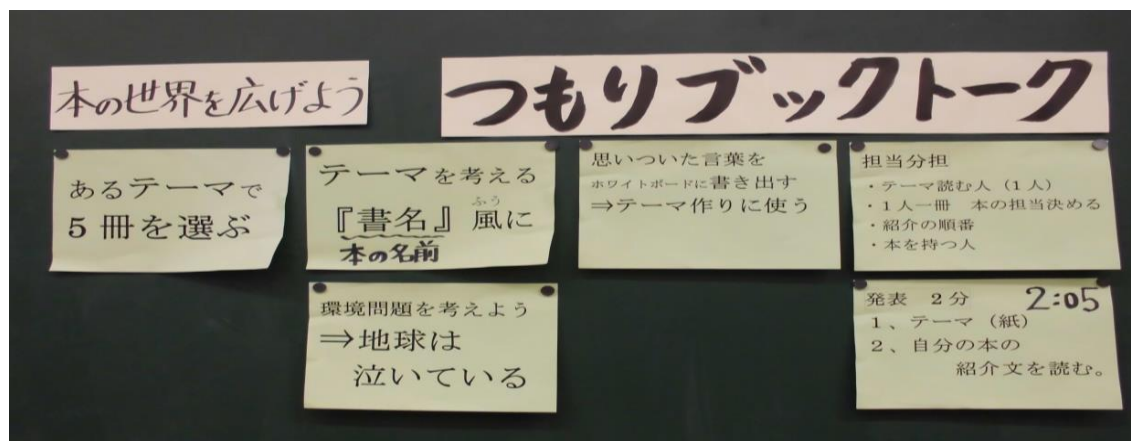 本の世界を広げよう
つもりブックトーク
あるテーマで
5冊を選ぶ
テーマを考える
ふう
『書名』風に
本の名前
環境問題を考えよう
⇒地球は
泣いている
思いついた言葉を
ホワイトボードに書き出す
⇒テーマ作りに使う
担当分担
・テーマ読む人（1人）
・1人一冊　本の担当決める
・紹介の順番
・本を持つ人
発表　2分　2:05
1、テーマ（紙）
2、自分の本の
紹介文を読む。